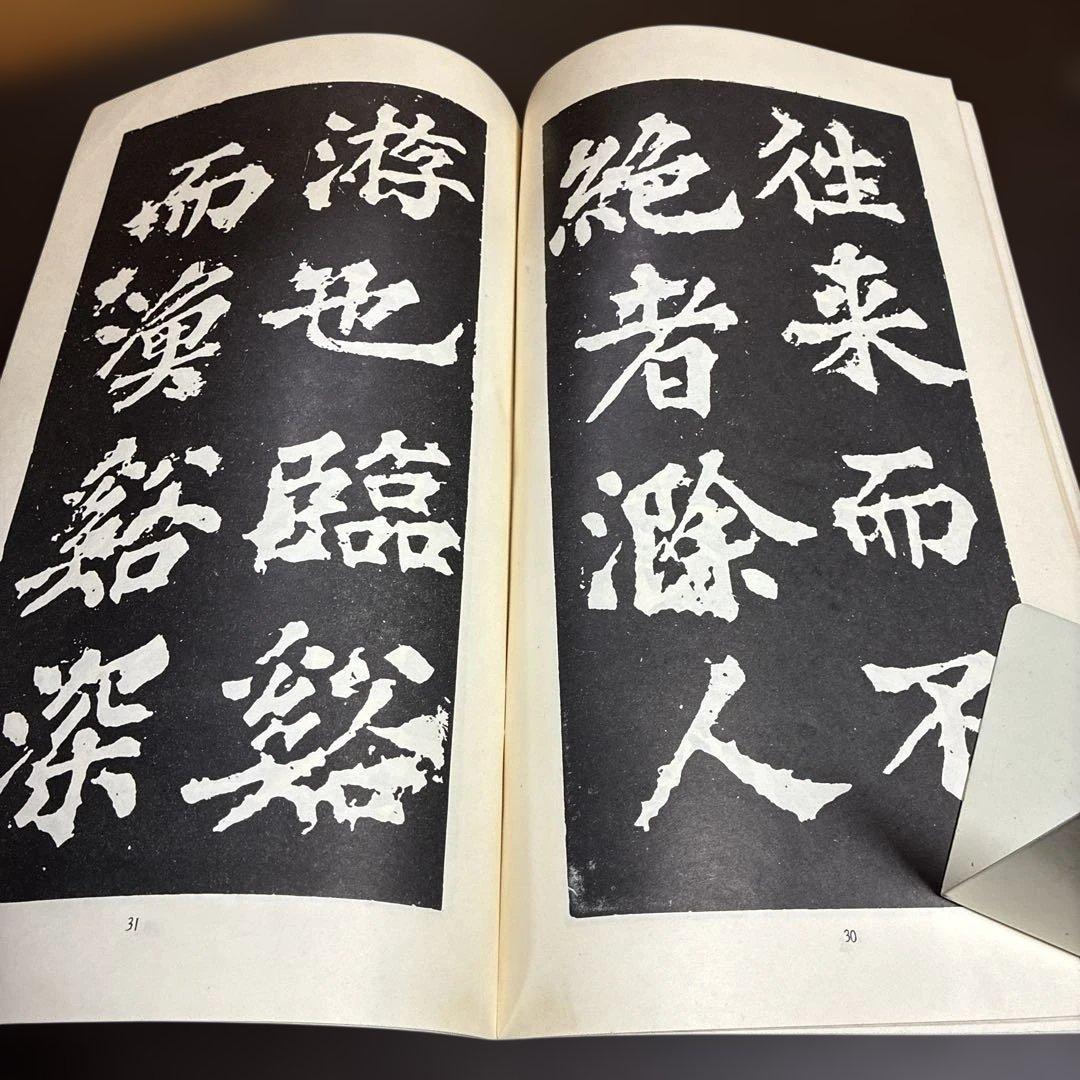 往来而不
絶者滁人
30
游也臨谿
而漁谿深
31